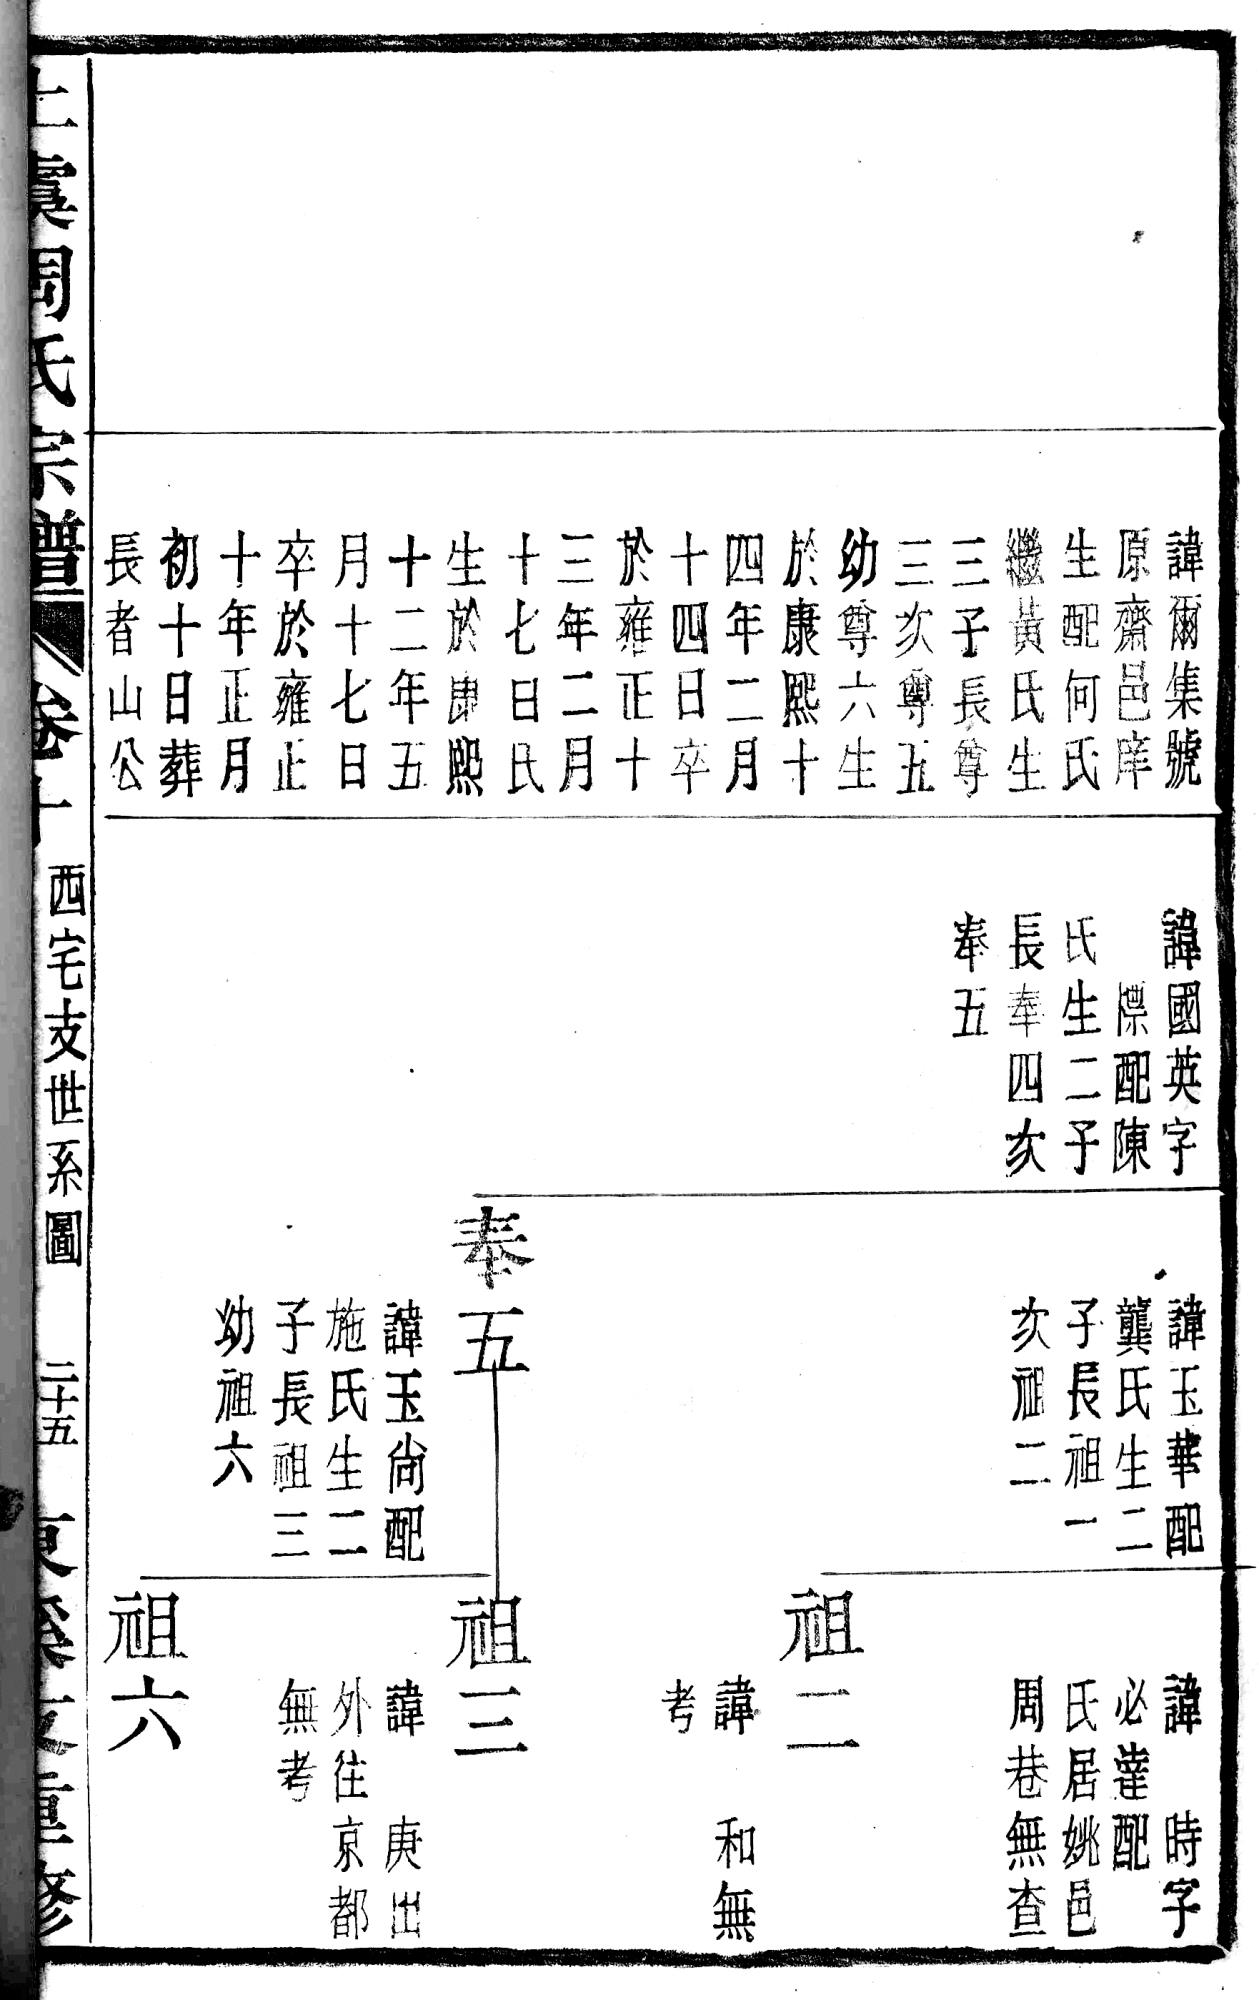 諱爾集號
原齋邑庠
生配何氏
繼黃氏生
三子長尊
三次尊五
幼尊六生
於康熙十
四年二月
十四日卒
於雍正十
三年二月
十七日氏
生於康熙
十二年五
月十七日
卒於雍正
十年正月
初十日葬
長者山公
諱國英字
配陳
氏生二子
長奉四次
奉五
諱玉華配
龔氏生二
子長祖一
次祖二
奉五
諱玉尙配
施氏生二
子長祖三
幼祖六
諱 時字
必達配
氏居姚邑
周巷無查
祖二
諱 和無
考
祖三
諱 庚出
外往京都
無考
祖六
上虞周氏宗譜 卷十 西宅支世系圖 二十五 重修